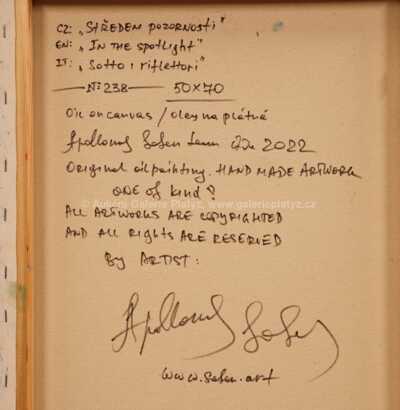 CZ: „STŘEDEM POZORNOSTI"
EN: „IN THE SPOTLIGHT"
IT: „SOTTO I RIFLETTORI"
N: 238 50x70
Oil on canvas / olej na plátně
2022
Original oil painting. HAND MADE ARTWORK
ONE OF KIND?
© Aukční Galerie Platýz, www.galerieplatyz.cz
ALL ARTWORKS ARE COPYRIGHTED
AND ALL RIGHTS ARE RESERVED
BY ARTIST: